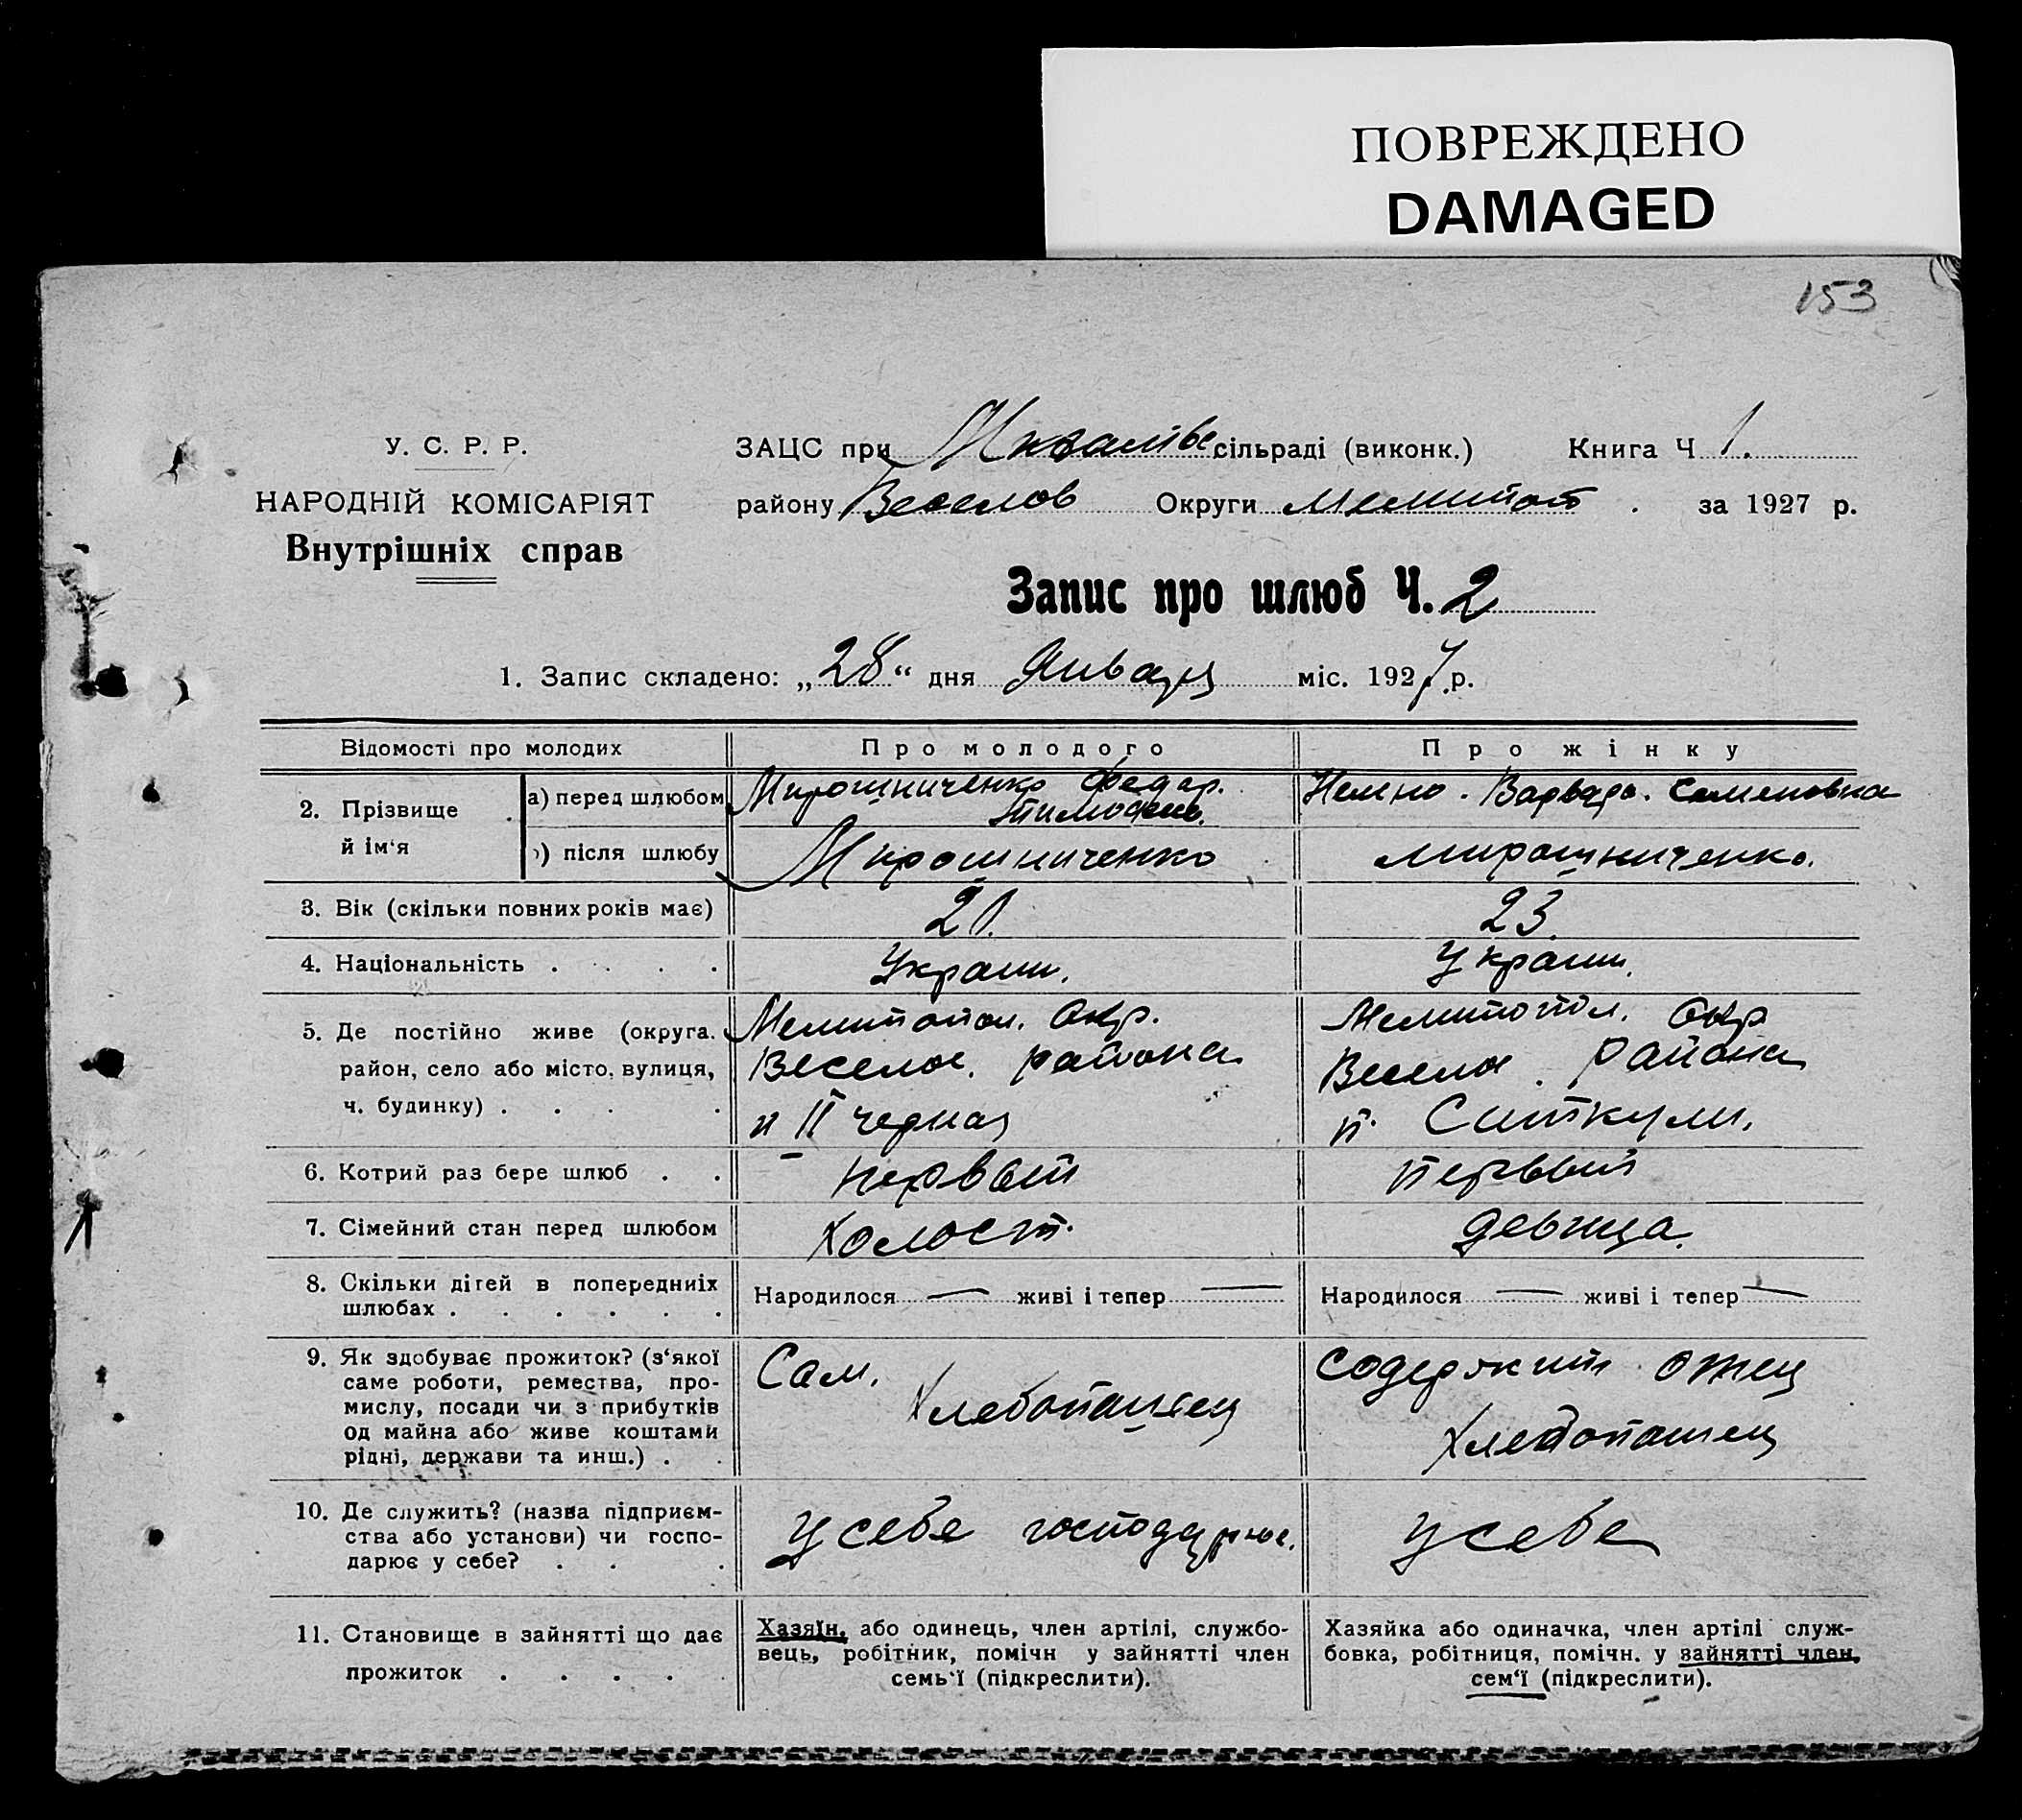 ПОВРЕЖДЕНО
DAMAGED
153
У. С. Р. Р.
НАРОДНІЙ КОМІСАРІЯТ
Внутрішніх справ
ЗАЦС при сільраді (виконк.) Книга Ч 1.
району Веселов Округи Мелитоп . за 1927 р.
Запис про шлюб Ч. 2
1. Запис складено: „28“ дня Января міс. 1927.р.
Відомості про молодих Про молодого Про жінку
2. Прізвище й ім‘я
а) перед шлюбом Мирошниченко Федор. Тимофеев. Варвара. Семеновна
) після шлюбу Мирошниченко Мирошниченко.
3. Вік (скільки повних років має) 21. 23.
4. Національність . . . . Украин. Украин.
5. Де постійно живе (округа. район, село або місто, вулиця, ч. будинку) . . . .
Мелитопол. Окр.
Веселов. района
п II черная
Мелитопол. Окр
Весело . Района
п. Ситкули.
6. Котрий раз бере шлюб . . первый первый
7. Сімейний стан перед шлюбом холост. девица.
8. Скільки дітей в попередниіх шлюбах . . . . . .
Народилося — живі і тепер —
Народилося — живі і тепер —
9. Як здобуває прожиток? (з‘якої
саме роботи, ремества, про-
мислу, посади чи з прибутків
од майна або живе коштами
рідні, держави та инш.) . .
Сам.
Хлебопашец
содержит отец
хлебопашец
10. Де служить? (назва підприєм-
ства або установи) чи госпо-
дарює у себе? . . .
у себе господарює.
у себе
11. Становище в зайнятті що дає
прожиток . . . . .
Хазяїн, або одинець, член артілі, службо-
вець, робітник, помічн у зайнятті член
семь‘ї (підкреслити).
Хазяйка або одиначка, член артілі служ-
бовка, робітниця, помічн. у зайнятті член,
сем‘ї (підкреслити).